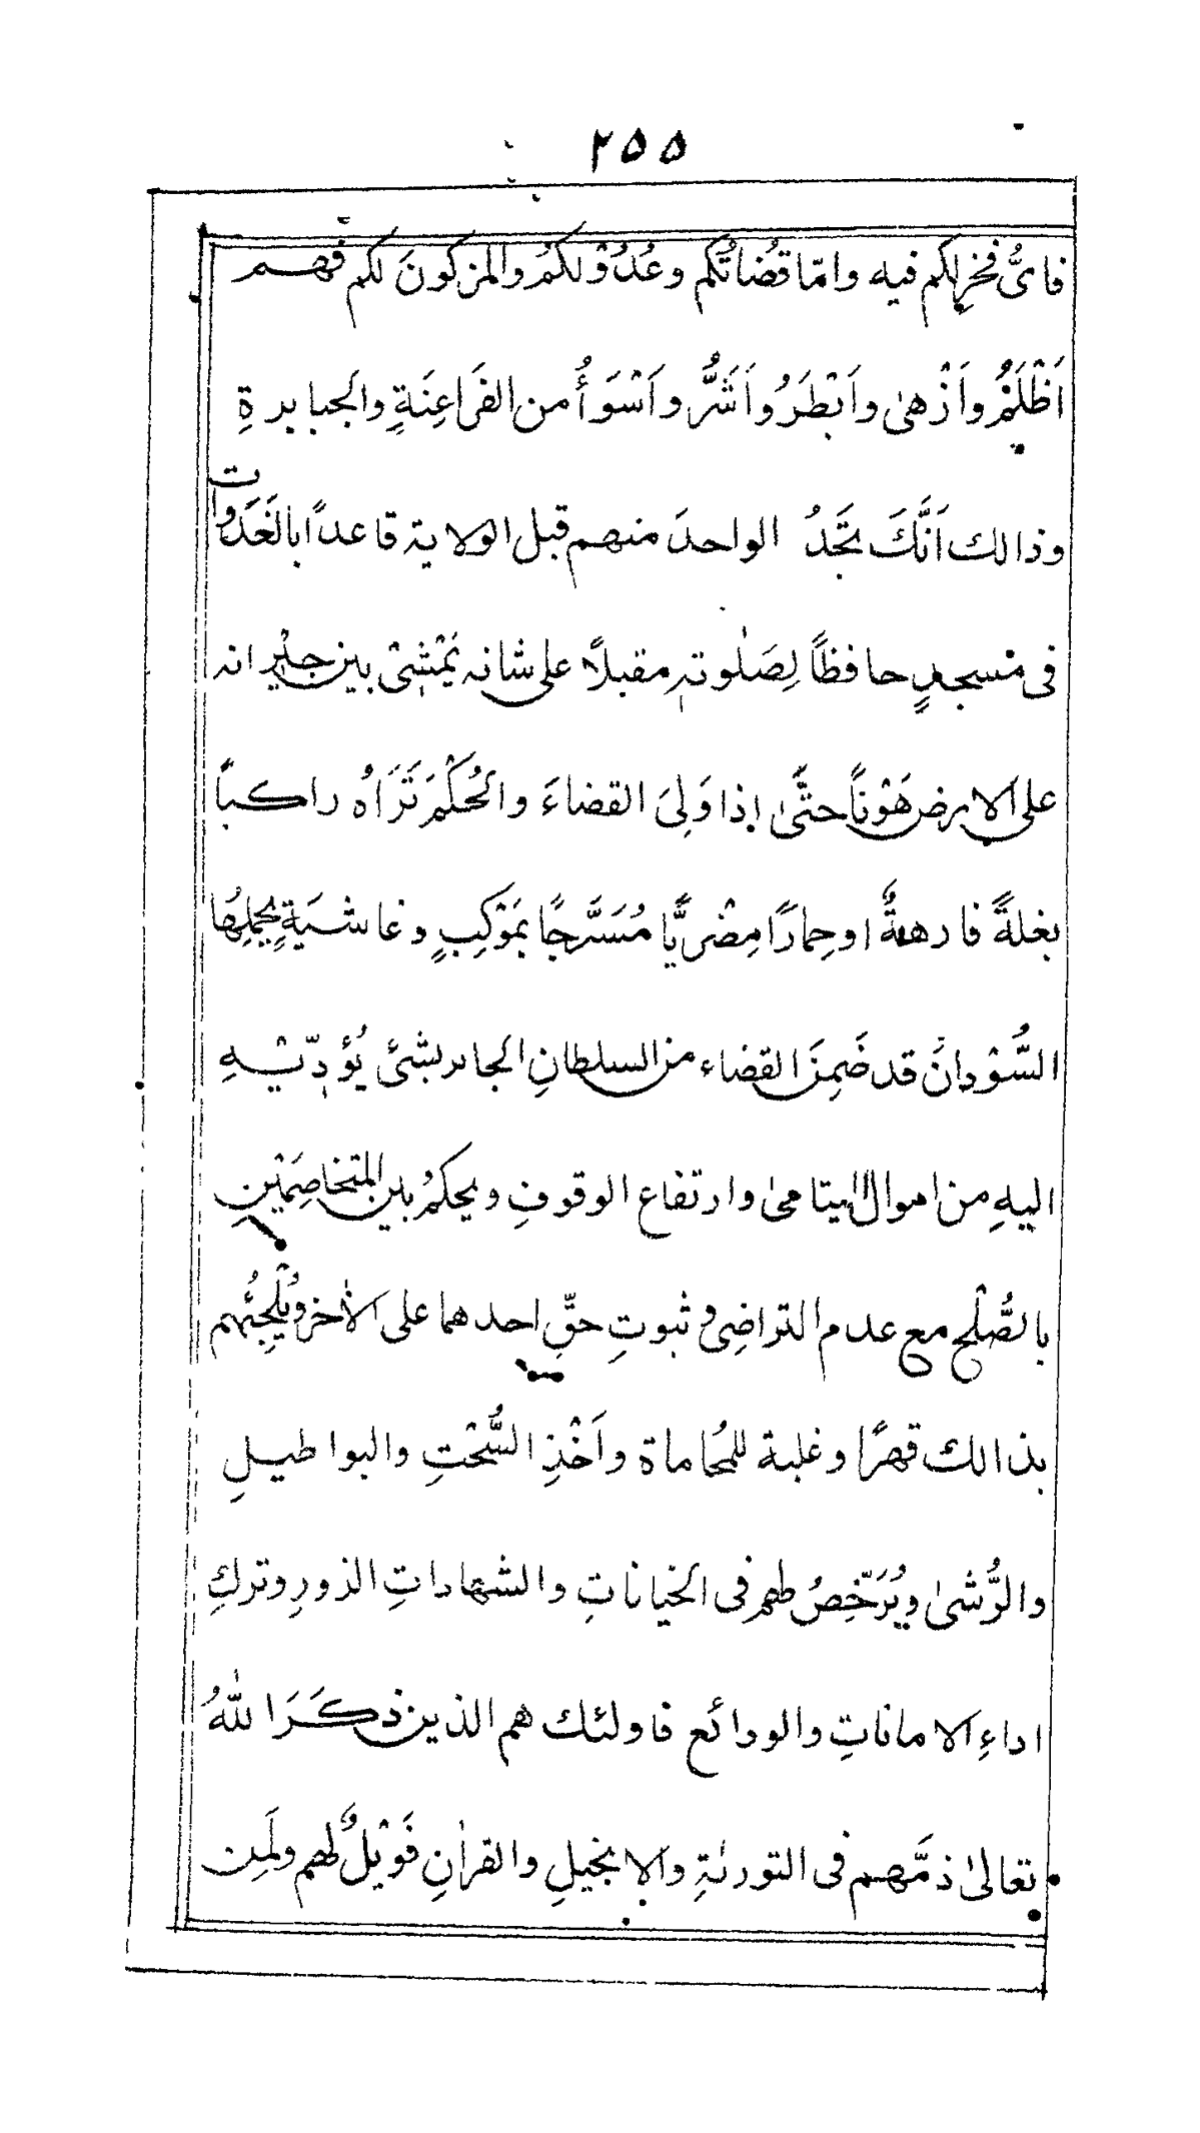 ٢٥٥
فاىُّ فخرٍ لكم فيه وامّا قُضاتُكم وعُدُوْلكمُ والمزكونَ لكم فهم
اَظْلَمُ واَزْهىٰ واَبْطَرُ واَشَرُّ واَسْوَأُ من الفَرَاعِنَةِ والجبابرةِ
وذالك اَنَّكَ تَجَدُ الواحدَ منهم قبل الولاية قاعدًا بالغَدَوات
فى مْسجدٍ حافظاً لِصَلٰوتهٖ مقبلًا على شانه يَمْشِىْ بين جيْرانه
على الارض هَوْناً حتَّىٰ اِذا وَلِىَ القضاءَ والحُكْمَ تَرَاهُ راكباً
بغلةً فارهةٌ اوحِمارًا مِصْريًّا مُسَرَّجًا بمَوْكِبٍ وغاشيَةٍ يحملِهُا
السُّوْدانَ قد ضَمِنَ القضاء من السلطانِ الجابر بشىْئٍ يُؤدِّيْهِ
اليهِ من اموال اليتامىٰ وارتفاع الوقوفِ ويحكمُ بين المتخاصِمَيْنِ
بالصُّلْح مع عدم التراضِى وثبوتِ حقِّ احدهما على الاٰخر ويُلْجِئُهم
بذالك قهرًا وغلبة للمُحاماة واَخْذِ السُّحْتِ والبواطيلِ
والرُّشىٰ ويُرَخّصُ لهم فى الخياناتِ والشهاداتِ الذورِ وتركِ
اداءِ الاماناتِ والودائع فاولئك هم الذين ذكَرَ اللهُ
تعالىٰ ذمَّهم فى التورىٰةِ والانجيلِ والقراٰنِ فَوَيْلٌ لهم ولَمِن